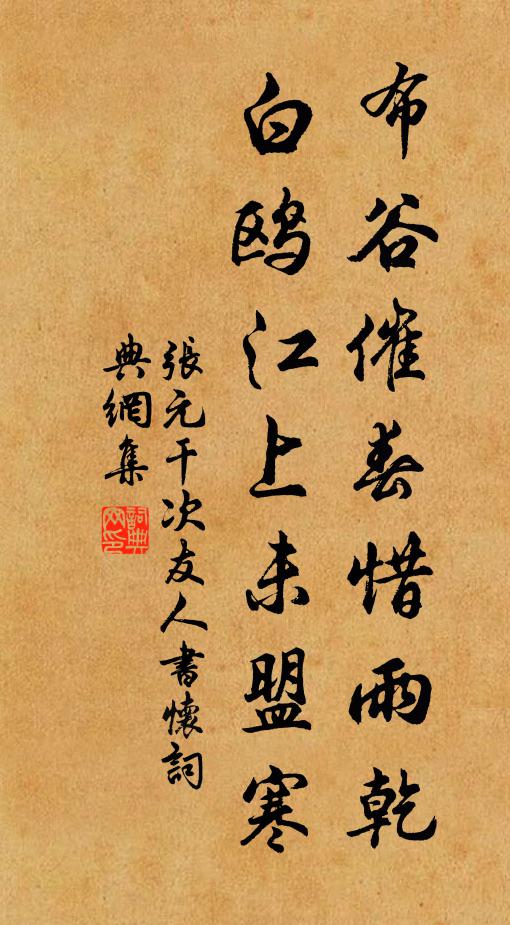 布谷催春惜雨乾
白鷗江上未盟寒
張元干次友人書懷詞
典網集
詞典网印